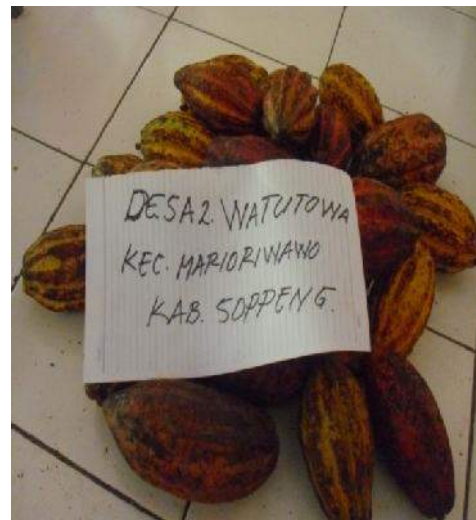 DESA 2. WATUTOWA
KEC. MARIORIWAWO
KAB. SOPPENG.